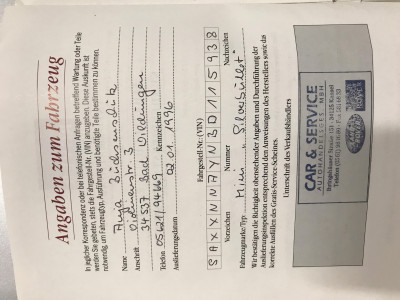 Angaben zum Fahrzeug
In jeglicher Korrespondenz oder bei telefonischen Anfragen betreffend Wartung oder Teile
werden Sie gebeten, stets die Fahrgestell-Nr. (VIN) anzugeben. Diese Auskunft ist
notwendig, um Fahrzeugtyp, Ausführung und benötigte Teile bestimmen zu können.
Name Anja
Anschrift 3
34537 Bad Wildungen
Telefon 05621/94669 Kennzeichen
Auslieferungsdatum 02.01.1996
Fahrgestell-Nr. (VIN)
SAXXYNN7YNBD115938
Vorzeichen Nummer Nachzeichen
Fahrzeugmarke/Typ: Mini "Silverbullet"
Wir bestätigen die Richtigkeit obenstehender Angaben und Durchführung der
Auslieferungsinspektion entsprechend den Anweisungen des Herstellers sowie das
korrekte Ausfüllen des Gratis-Service-Scheines.
Unterschrift des Vertragshändlers
CAR & SERVICE
AUTOHANDELSGES. MBH
34125 Kassel
Telefon